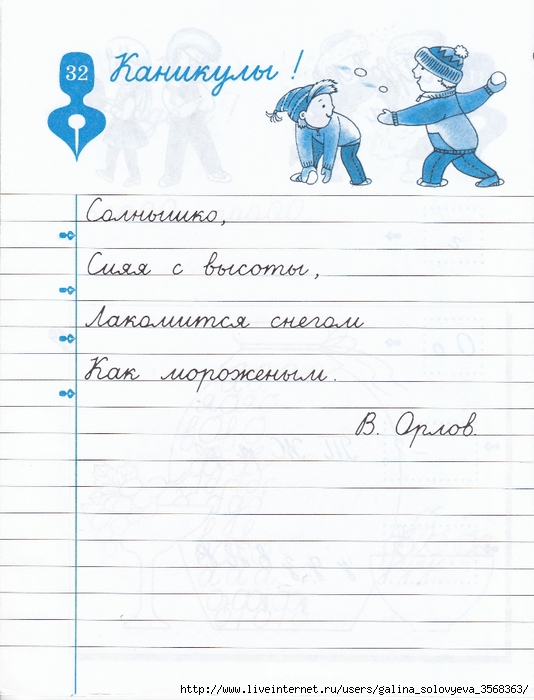 32
Каникулы!
Солнышко,
Сияя с высоты,
Лакомится снегом
Как мороженым.
В. Орлов.
http://www.liveinternet.ru/users/galina_solovyeva_3568363/